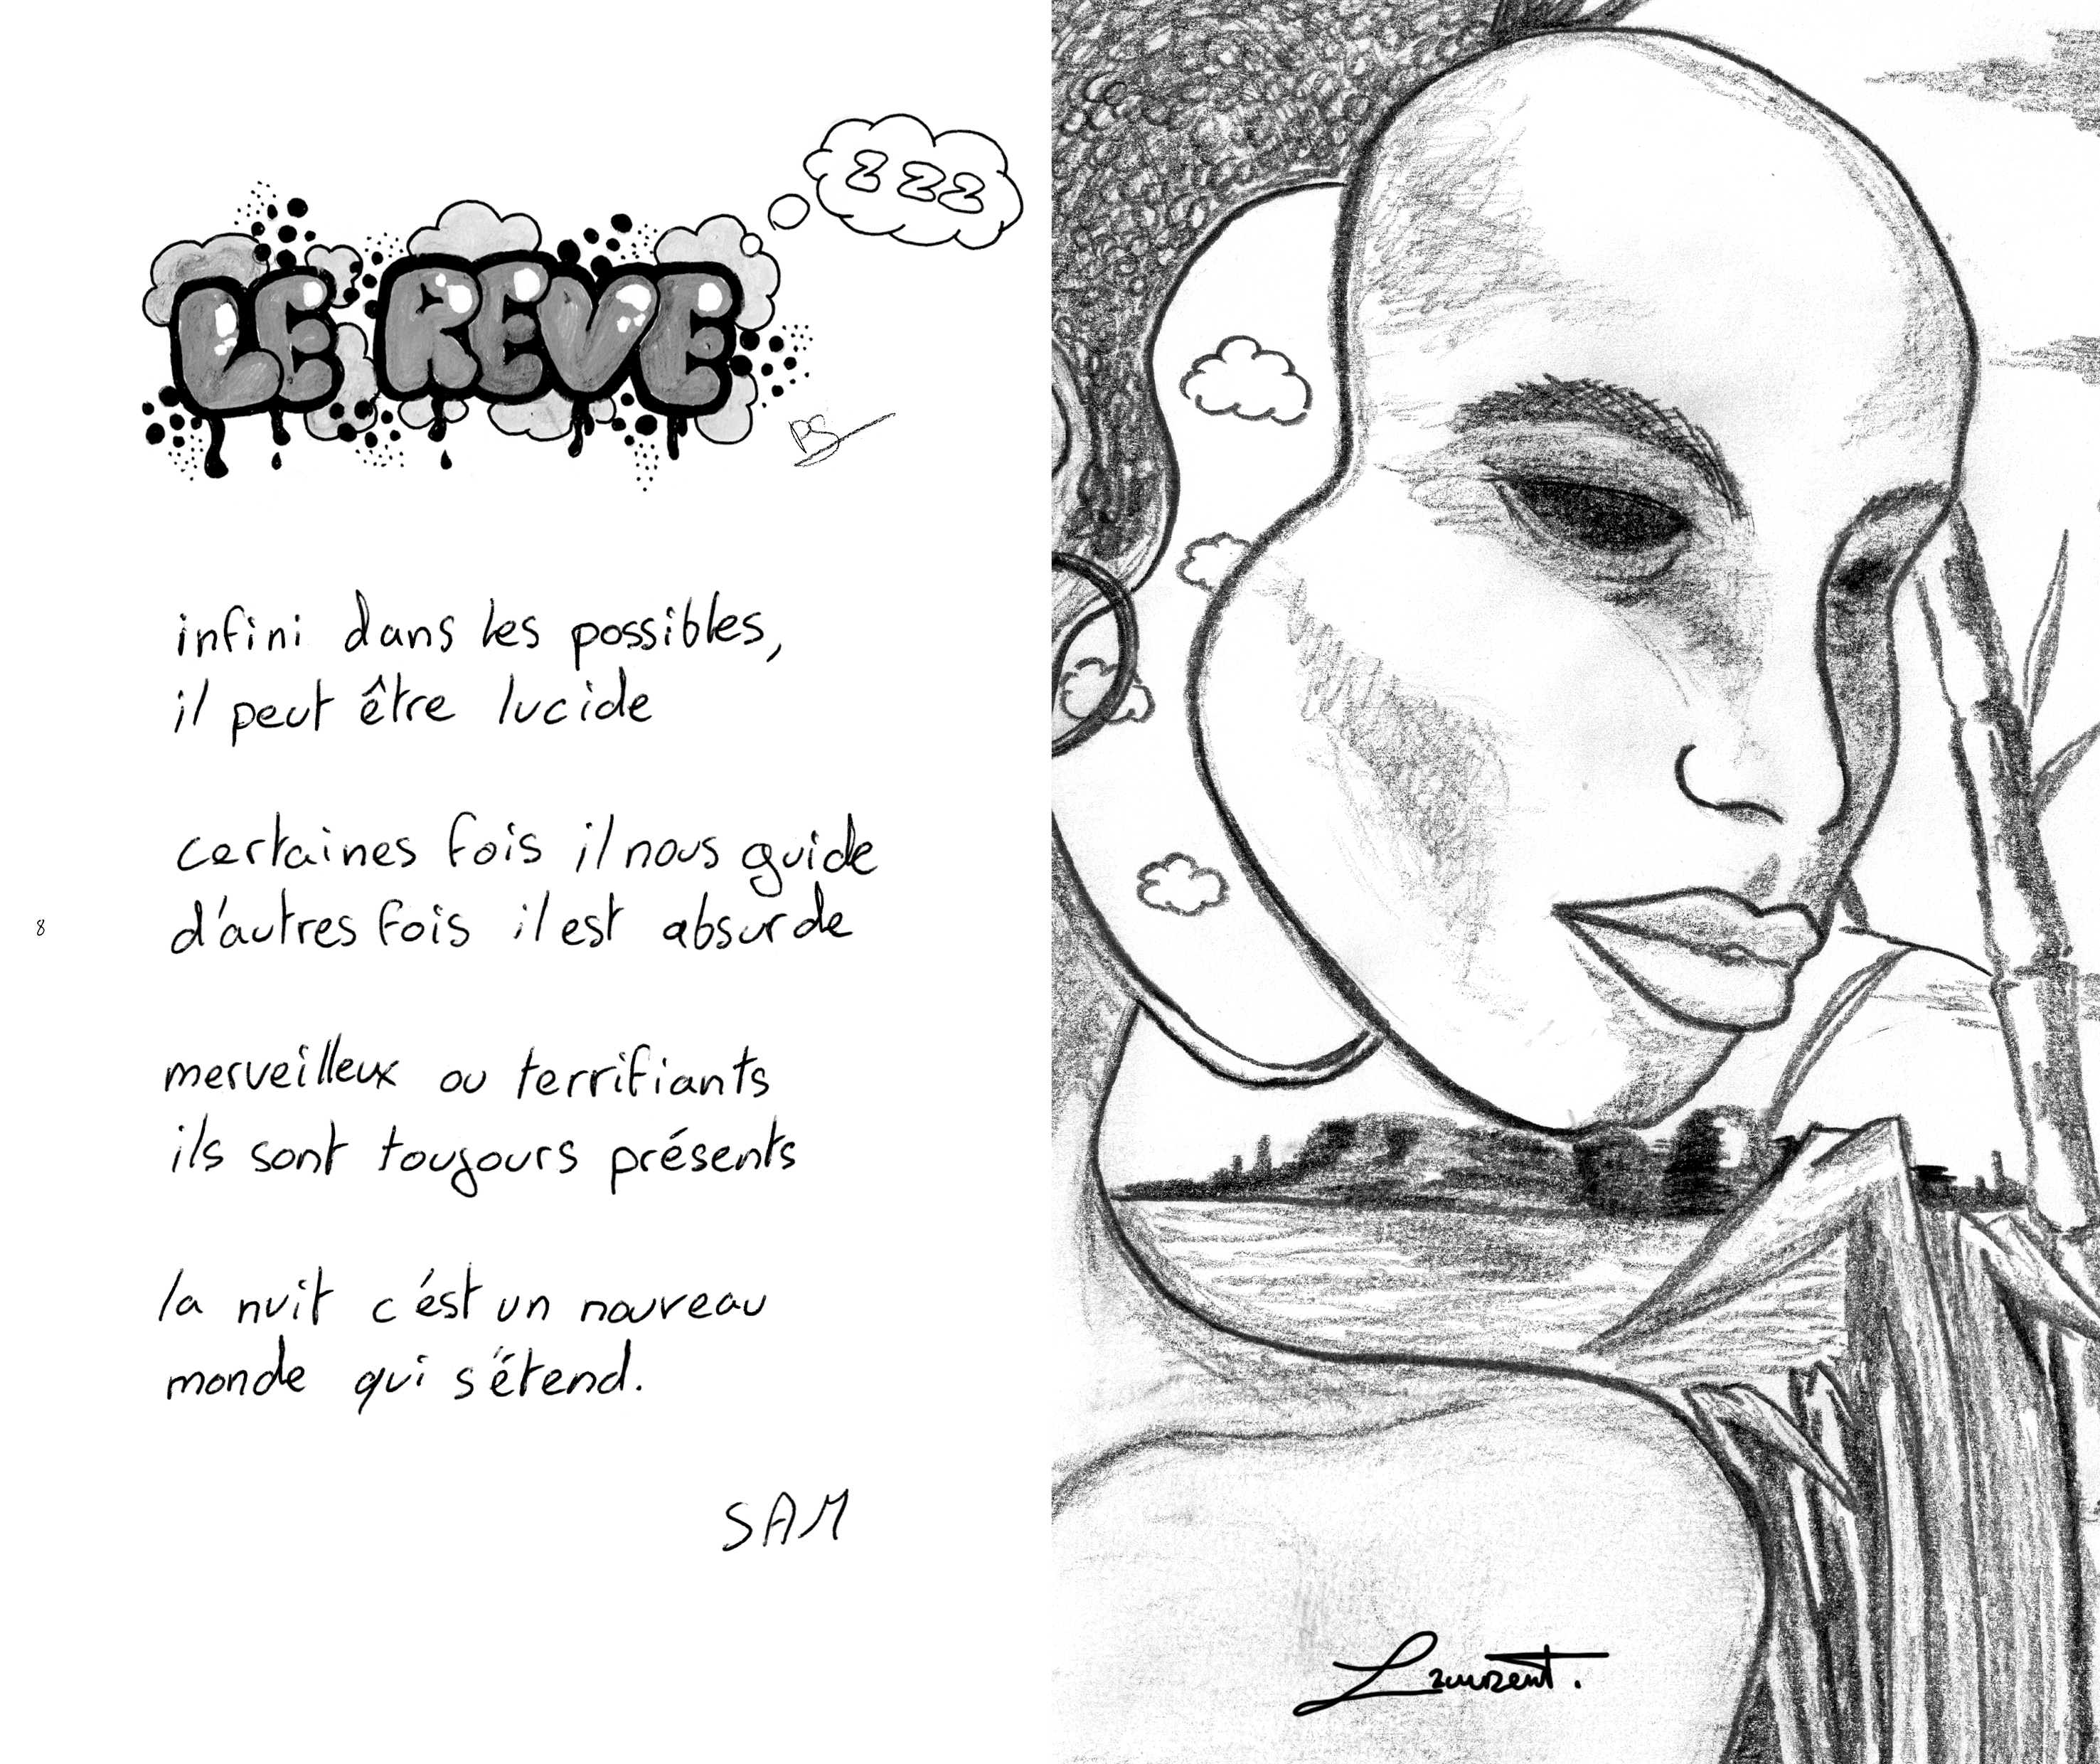 ZZZ
LE REVE
BS
infini dans les possibles,
il peut être lucide
certaines fois il nous guide
d'autres fois il est absurde
8
merveilleux ou terrifiants
ils sont toujours présents
la nuit c'est un nouveau
monde qui s'étend.
SAM
Laurent.